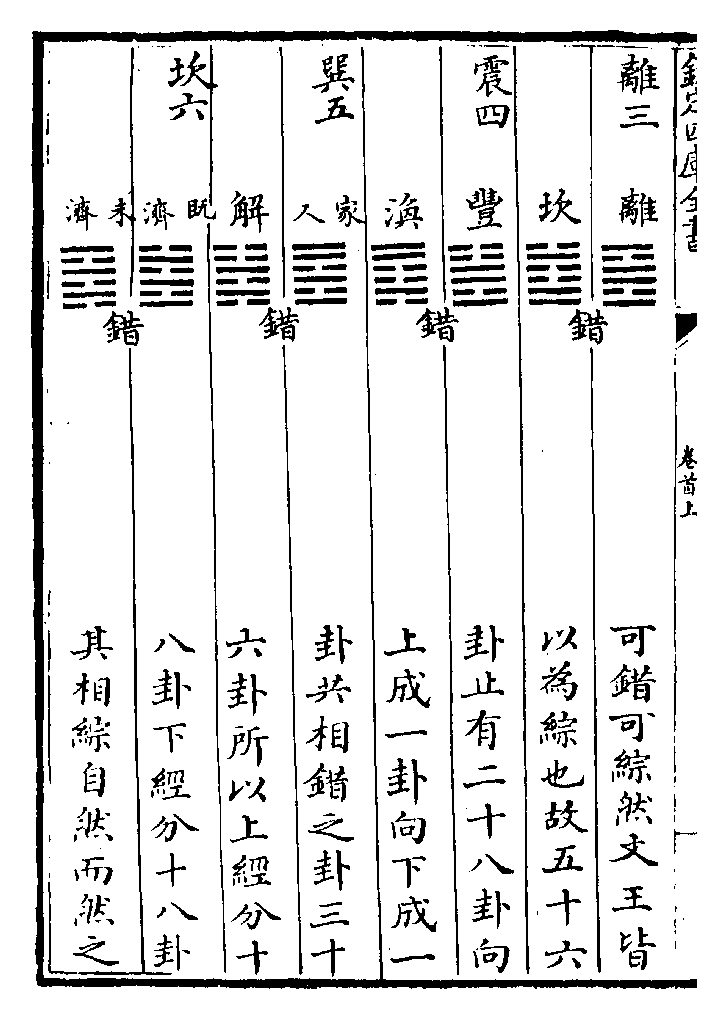 欽定四庫全書
卷首上
離三
離
坎
錯
震四
豐
渙
錯
巽五
家人
解
錯
坎六
既濟
未濟
錯
可錯可綜然文王皆
以為綜也故五十六
卦止有二十八卦向
上成一卦向下成一
卦共相錯之卦三十
六卦所以上經分十
八卦下經分十八卦
其相綜自然而然之